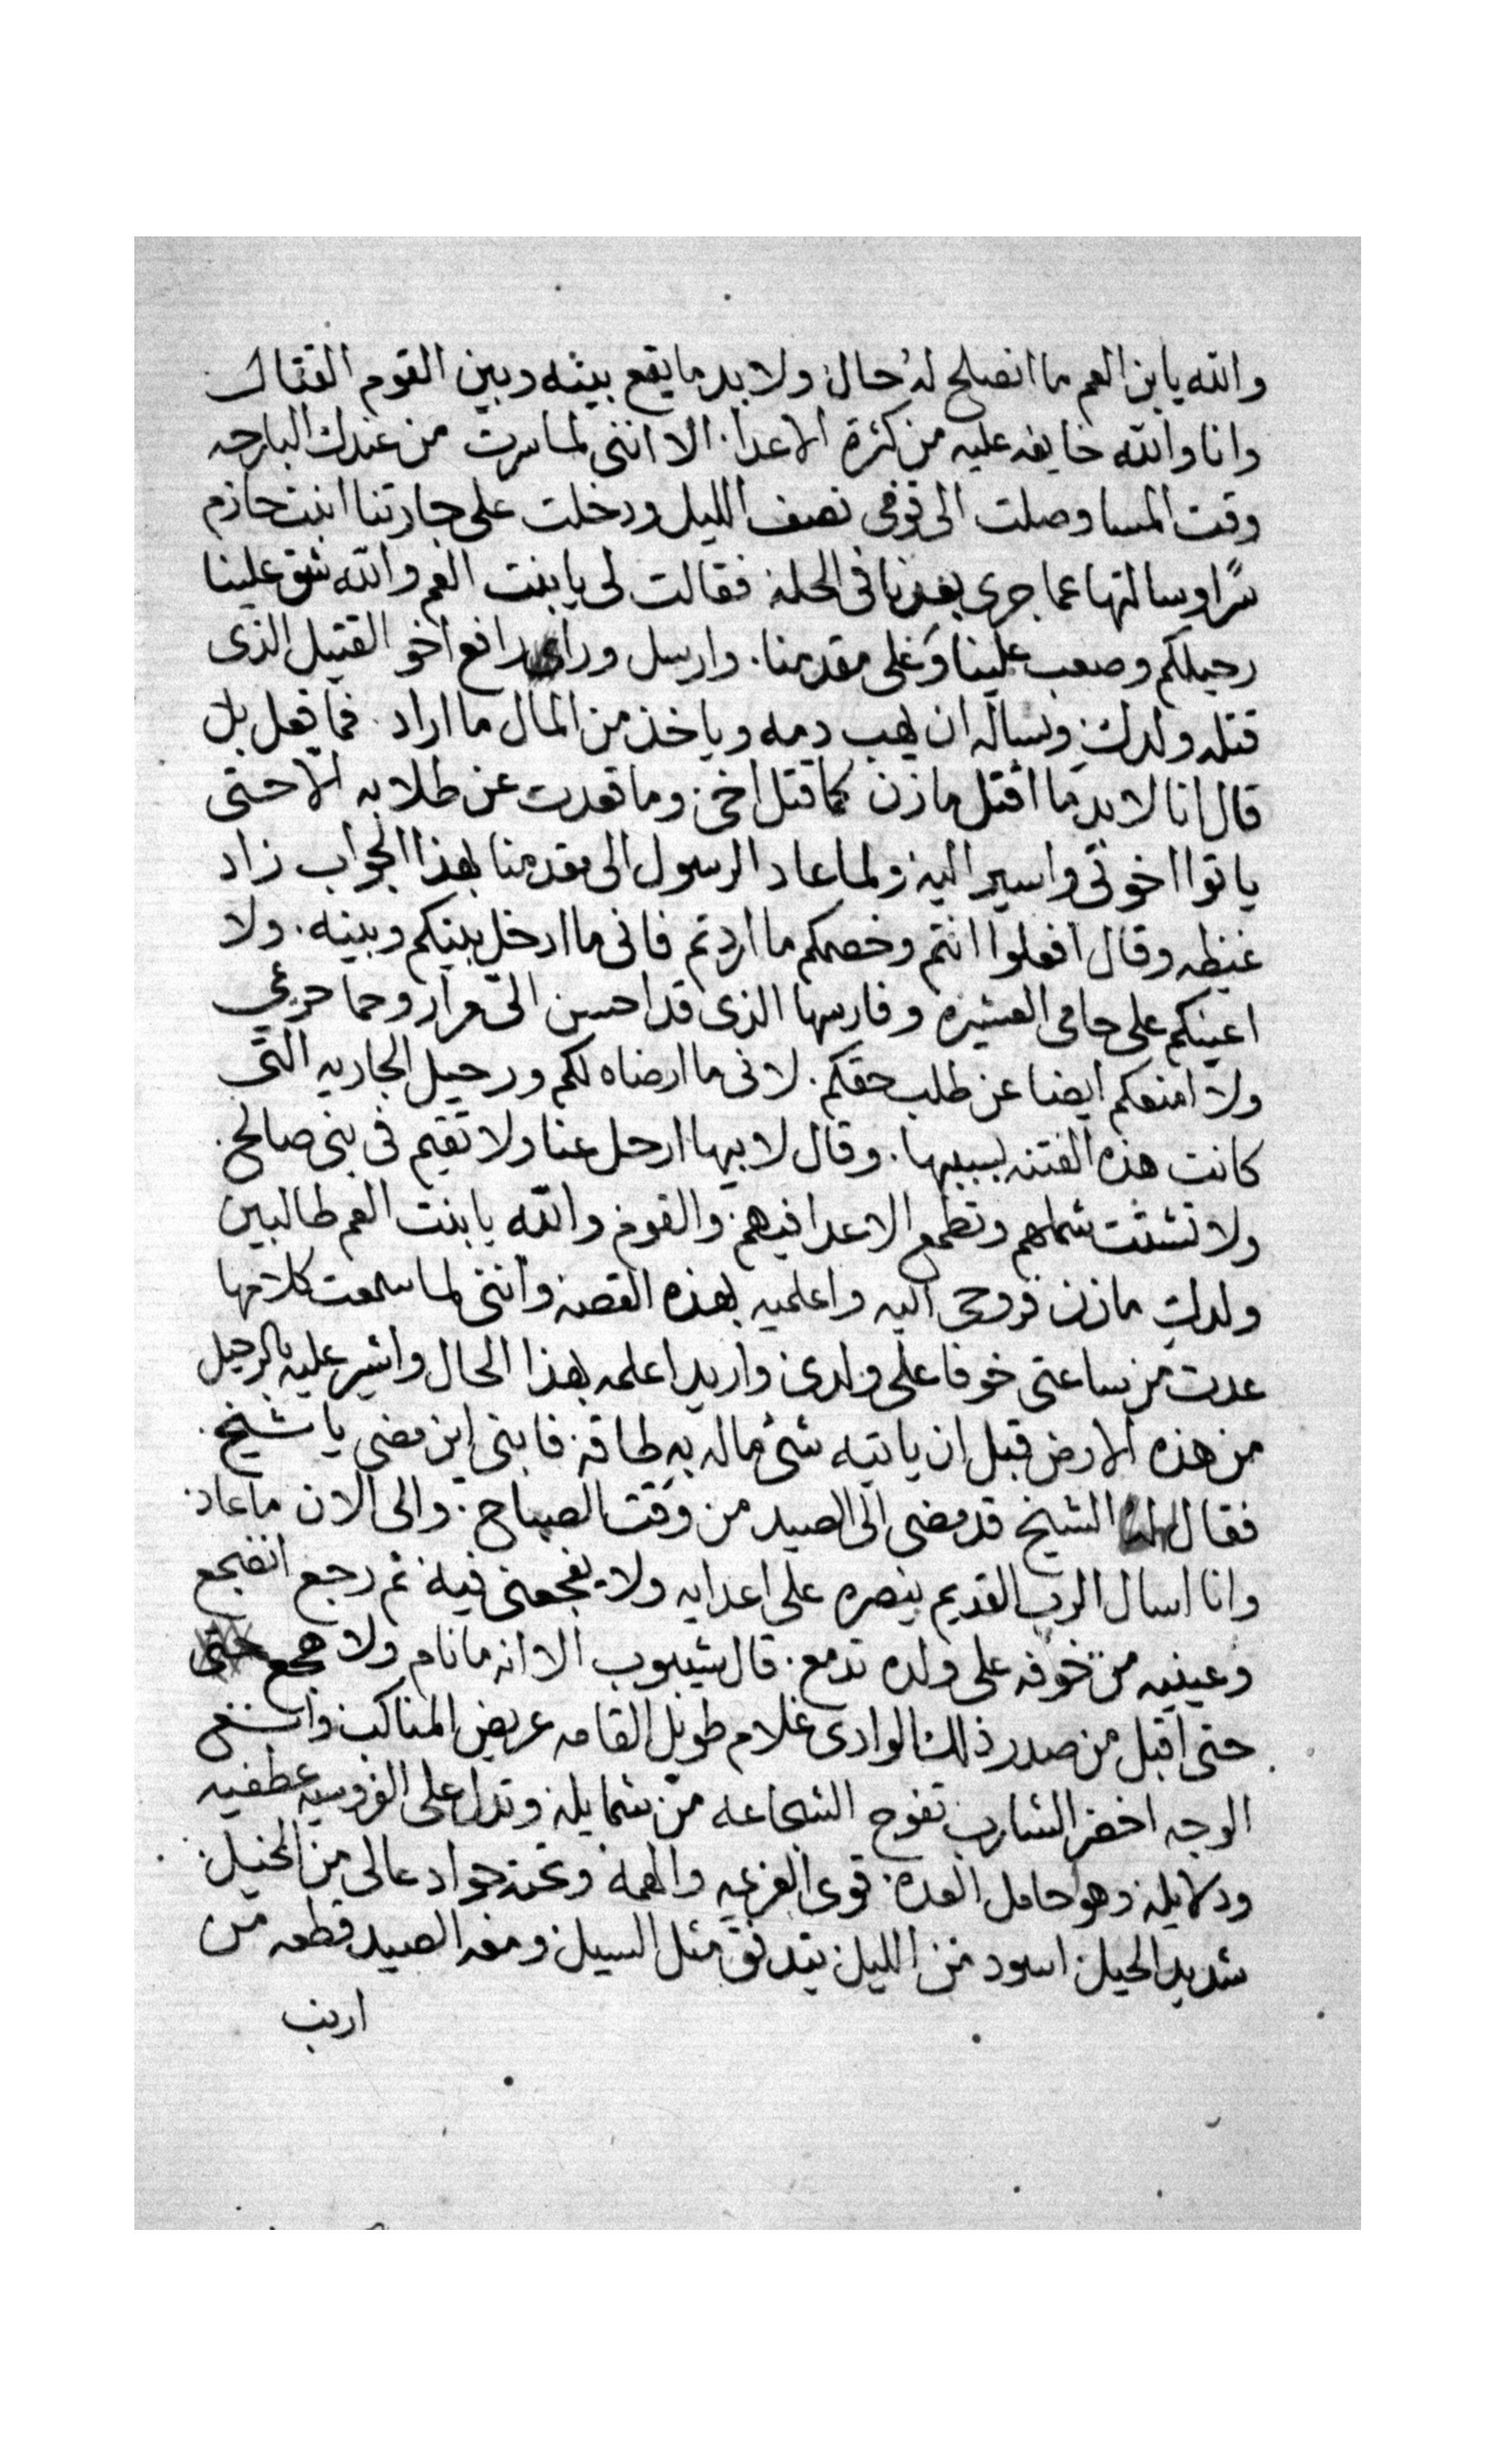 والله يابن العم ما انصلح له حال ولا بد ما يقع بينه وبين القوم القتال
وانا والله خايفه عليه من كثرة الاعدا. الا انني لما سرت من عندك البارحه
وقت المسا وصلت الى قومى نصف الليل ودخلت على جارتنا ابنت حازم
سرًا وسالتها عما جرى بعدنا فى الحلة فقالت لى يا بنت العم والله شق علينا
رحيلكم وصعب علينا وعلى مقدمنا. وارسل ورا رافع اخو القتيل الذى
قتله ولدك وساله ان يهب دمه وياخذ من المال ما اراد. فما فعل بل
قال انا لا بد ما اقتل مازن كما قتل اخى. وما قعدت عن طلابه الا حتى
ياتوا اخوتى واسير اليه ولما عاد الرسول الى مقدمنا بهذا الجواب زاد
غيظه وقال افعلوا انتم وخصمكم ما اردتم فانى ما ادخل بينكم وبينه. ولا
اعينكم على حامى العشيره وفارسها الذى قد احسن الىّ مرار وحما حريمى
ولا امنعكم ايضا عن طلب حقكم. لانى ما ارضاه لكم ورحيل الجاريه التى
كانت هذه الفتنه بسببها. وقال لابيها ارحل عنا ولا تقيم فى بنى صالح.
ولا تشتت شملهم وتطمع الاعدا فيهم. والقوم والله يا بنت العم طالبين
ولدك مازن فروحى اليه واعلميه بهذه القصه وانني لما سمعت كلامها
عدت من ساعتى خوفا على ولدى واريد اعلمه بهذا الحال واشير عليه بالرحيل
من هذه الارض قبل ان ياتيه شئ ماله به طاقه. فابنى اين مضى يا شيخ.
فقال الشيخ قد مضى الى الصيد من وقت الصباح. والى الان ما عاد.
وانا اسال الرب القديم ينصره على اعدايه ولا يفجعنى فيه ثم رجع انضجع
وعينيه من خوفه على ولده تدمع. قال شيبوب الا انه ما نام ولا هجع
حتى اقبل من صدر ذلك الوادى غلام طويل القامه عريض المناكب واسع
الوجه اخضر الشارب تفوح الشجاعه من شمايله وتدل على الفروسيه عطفيه
ودلايله وهو حامل العده. قوى العزيمه والهمه وتحته جواد عالى من الخيل.
شديد الحيل. اسود من الليل يتدفق مثل السيل ومعه الصيد قطعه من
ارنب